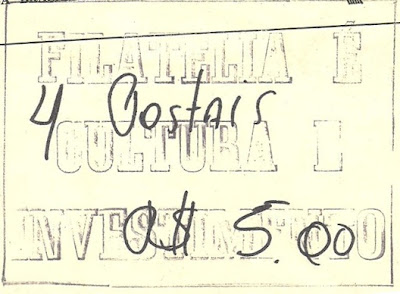 FILATELIA É
4 Postais
CULTURA E
INVESTIMENTO
R$ 5.00